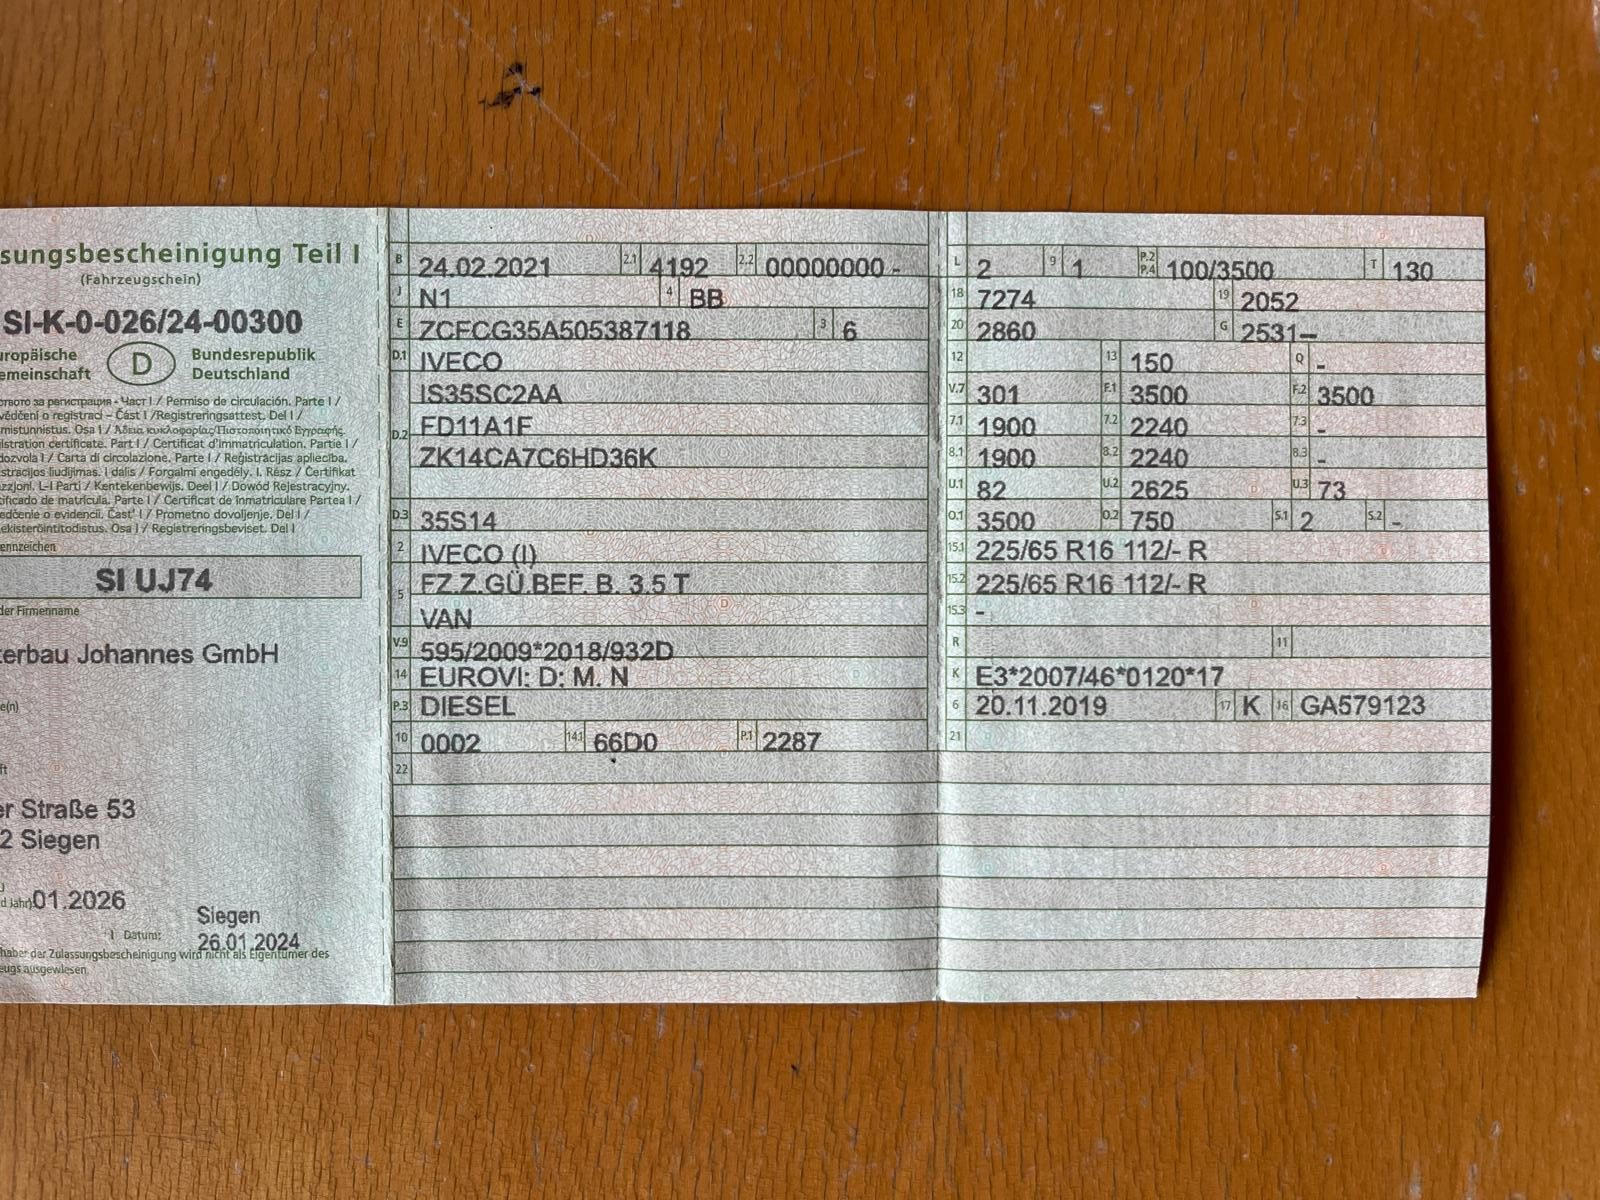 sungsbescheinigung Teil I
(Fahrzeugschein)
SI-K-0-026/24-00300
uropäische
emeinschaft
D
Bundesrepublik
Deutschland
ство за регистрация - Част I / Permiso de circulación. Parte I /
vědčení o registraci – Část I /Registreringsattest. Del I /
mistunnistus. Osa I / Άδεια κυκλοφορίας/Πιστοποιητικό Εγγραφής.
istration certificate. Part I / Certificat d'immatriculation. Partie I /
dozvola I / Carta di circolazione. Parte I / Reģistrācijas apliecība.
stracijos liudijimas. I dalis / Forgalmi engedély. I. Rész / Ċertifikat
zzjoni. L-I Parti / Kentekenbewijs. Deel I / Dowód Rejestracyjny.
tificado de matrícula. Parte I / Certificat de înmatriculare Partea I /
edčenie o evidencii. Časť I / Prometno dovoljenje. Del I /
ekisteröintitodistus. Osa I / Registreringsbeviset. Del I
ennzeichen
SI UJ74
der Firmenname
terbau Johannes GmbH
e(n)
ft
er Straße 53
2 Siegen
d Jahr) 01.2026
Siegen
Datum: 26.01.2024
haber der Zulassungsbescheinigung wird nicht als Eigentümer des
eugs ausgewiesen.
B 24.02.2021 2.1 4192 2.2 00000000 -
J N1 4 BB
E ZCFCG35A505387118 3 6
D.1 IVECO
IS35SC2AA
D.2 FD11A1F
ZK14CA7C6HD36K
D.3 35S14
2 IVECO (I)
5 FZ.Z.GÜ.BEF. B. 3.5 T
VAN
V.9 595/2009*2018/932D
14 EUROVI; D; M, N
P.3 DIESEL
10 0002 14.1 66D0 P.1 2287
22
L 2 9 1 P.2 P.4 100/3500 T 130
18 7274 19 2052
20 2860 G 2531–
12 13 150 Q -
V.7 301 F.1 3500 F.2 3500
7.1 1900 7.2 2240 7.3 -
8.1 1900 8.2 2240 8.3 -
U.1 82 U.2 2625 U.3 73
O.1 3500 O.2 750 S.1 2 S.2 -
15.1 225/65 R16 112/- R
15.2 225/65 R16 112/- R
15.3 -
R 11
K E3*2007/46*0120*17
6 20.11.2019 17 K 16 GA579123
21